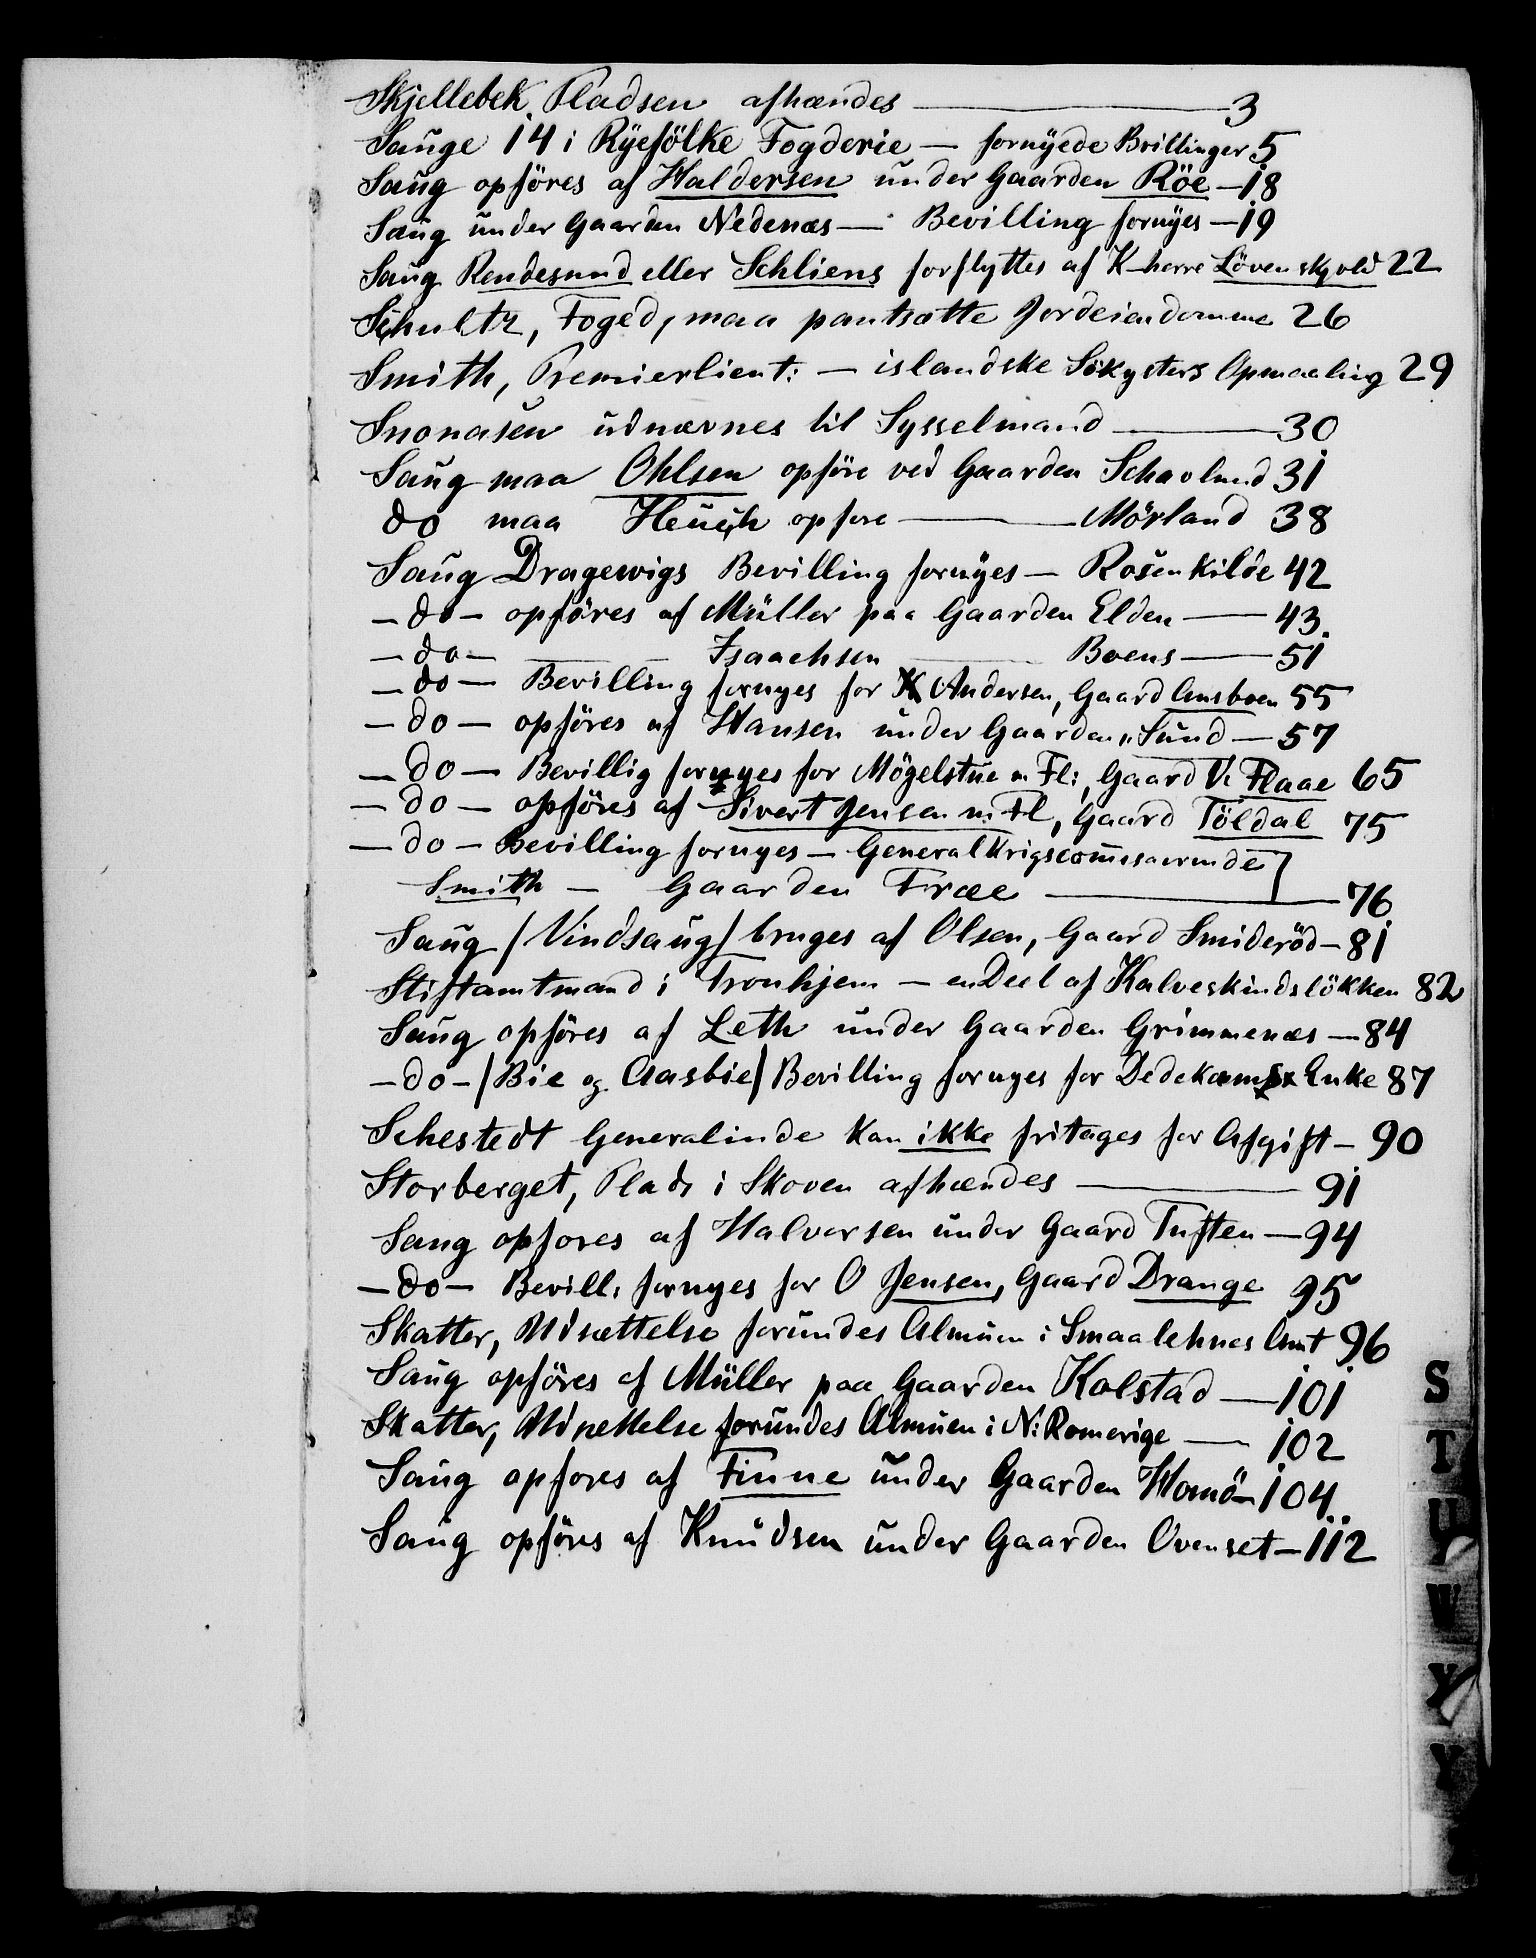 Skjellebek Pladsen afhændes — 3
Sauge 14 i Ryefölke Fogderie — fornyede Bevillinger 5
Saug opföres af Haldersen under Gaarden Röe — 18
Saug under Gaarden Nedenæs — Bevilling fornyes — 19
Saug Rendesund eller Schliens forflyttes af K-herre Lövenskjold 22
Schultz, Foged, maa pantsætte Jordeiendomme 26
Smith, Premierlieut: — islandske Sökysters Opmaaling 29
Snonasen udnævnes til Sysselmand — 30
Saug maa Ohlsen opföre ved Gaarden Schavlund 31
do maa Heuch opföre — Mörland 38
Saug Dragewigs Bevilling fornyes — Rosenkilde 42
— do — opföres af Müller paa Gaarden Elden — 43.
— do — — Isaachsen — Boens — 51
— do — Bevilling fornyes for K Andersen, Gaard Omsboen 55
— do — opföres af Hansen under Gaarden "Sund — 57
— do — Bevillig fornyes for Mögelstue m Fl:, Gaard V. Flaae 65
— do — opföres af Sivert Jensen m Fl, Gaard Töldal 75
— do — Bevilling fornyes — General Krigscommisaerende
Smith — Gaarden Fræe — 76
Saug / Vindsaug / bruges af Olsen, Gaard Smideröd — 81
Stiftamtmand i Tronhjem — en Deel af Kalveskindslökken 82
Saug opföres af Leth under Gaarden Grimmenæs — 84
— do — / Bie og Aasbie / Bevilling fornyes for Dedekams Enke 87
Sehestedt Generalinde kan ikke fritages for Afgift — 90
Storberget, Plads i Skoven afhændes — 91
Saug opföres af Halversen under Gaard Tuften — 94
— do — Bevill: fornyes for O Jensen, Gaard Drange 95
Skatter, Udsættelse forundes Almuen i Smaalehnes Amt 96
Saug opföres af Müller paa Gaarden Kolstad — 101
Skatter, Udsettelse forundes Almuen i N: Romerige — 102
Saug opföres af Finne under Gaarden Homö — 104
Saug opföres af Knudsen under Gaarden Ovenset — 112
S
T
U
W
Y
Y